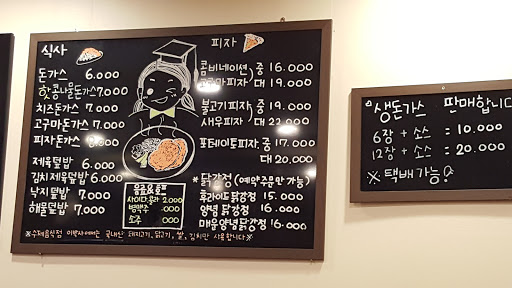 식사
돈가스 6.000
핫콩나물돈가스 7.000
치즈돈가스 7.000
고구마돈가스 7.000
피자돈가스 7.000
제육덮밥 6.000
김치제육덮밥 6.000
낙지덮밥 7.000
해물덮밥 7.000
음료&술
사이다.콜라 2.000
맥주 000
소주 000
피자
콤비네이션 중 16.000
고구마피자 대 19.000
불고기피자 중 19.000
새우피자 대 22.000
포테이토피자 중 17.000
대 20.000
*닭강정 (예약주문만 가능)
후라이드 닭강정 15.000
양념 닭강정 16.000
매운양념닭강정 16.000
※수제음식점 국내산 돼지고기, 닭고기, 쌀, 김치만 사용합니다※
*생돈가스 판매합니다
6장 + 소스 = 10.000
12장 + 소스 = 20.000
※ 택배가능